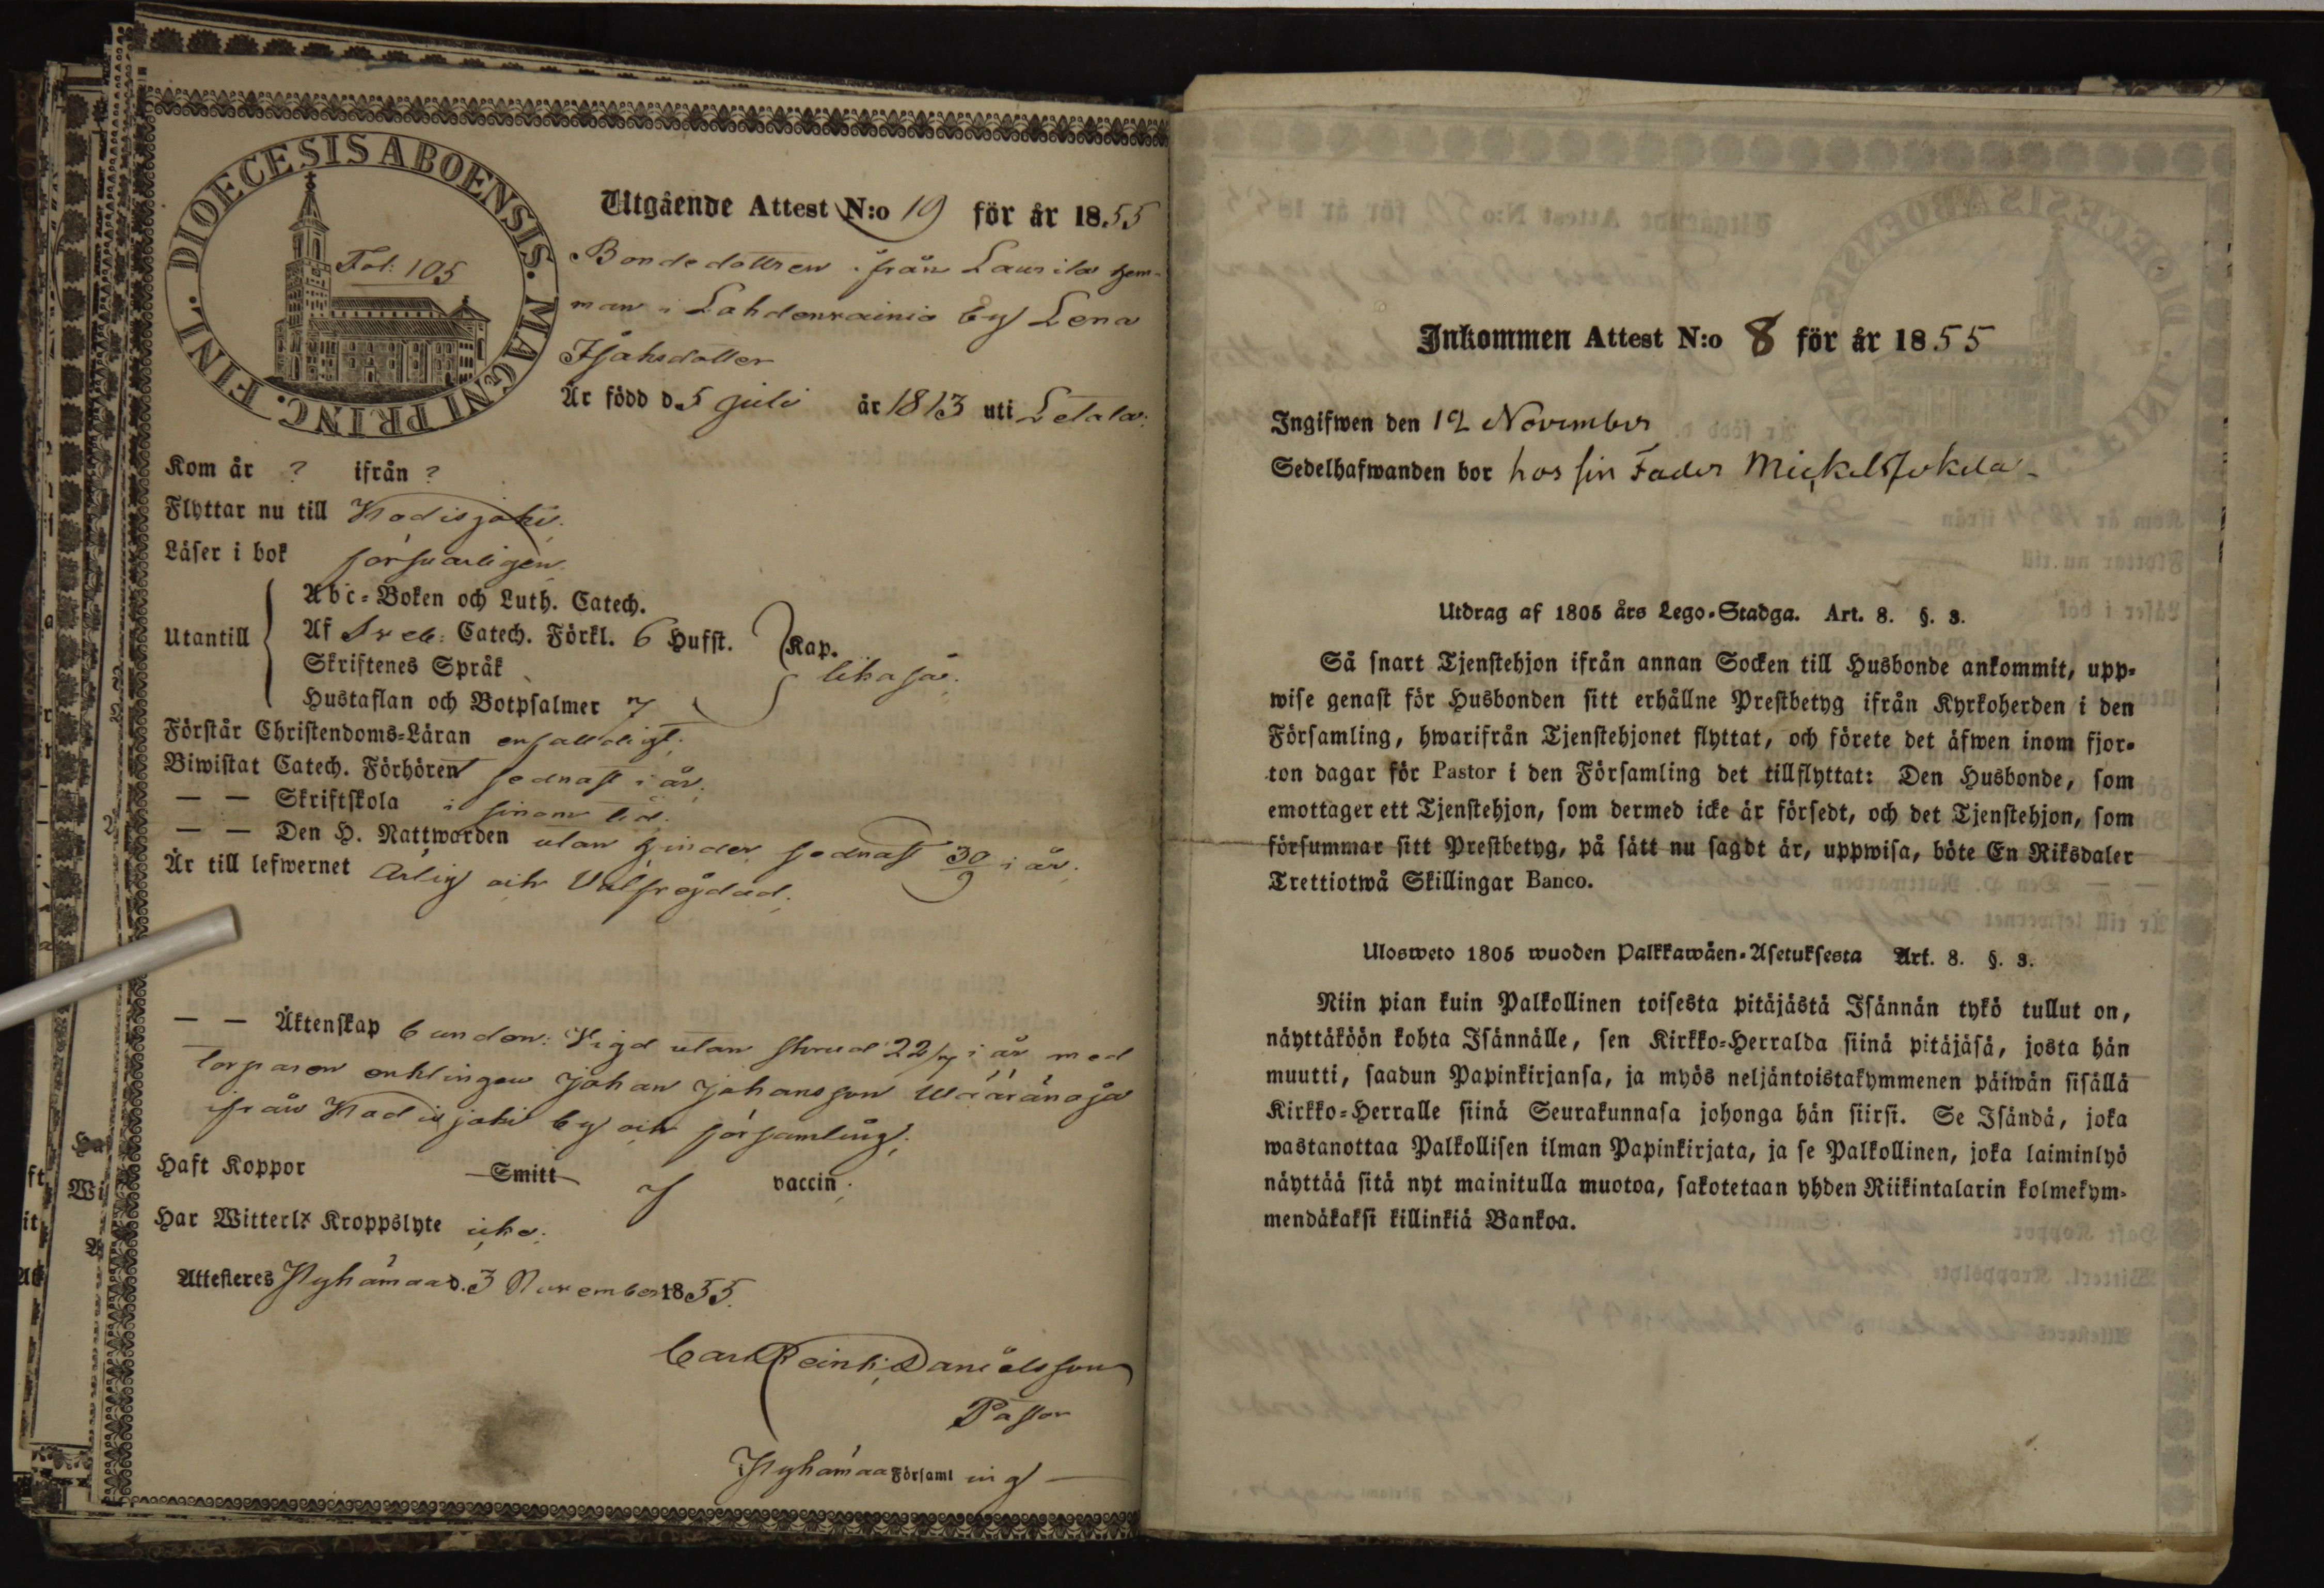 DIOECESIS ABOENSIS. MAGNI PRINC. FINL.
Fol: 105
Utgående Attest N:o 19 för år 1855
Bondedottren ifrån Laurila hem-
man i Lahdenrainio by Lena
Isaksdotter
Är född d. 5 Juli år 1813 uti Letala.
Kom år ? ifrån ?
Flyttar nu till Hodisjoki.
Läser i bok försvarligen.
Utantill
Abc-Boken och Luth. Catech.
Af Sveb: Catech. Förkl. 6 Hufst. Kap.
Skriftenes Språk
likaså.
Hustaflan och Botpsalmer 7
Förstår Christendoms-Läran enfaldigt.
Biwistat Catech. Förhören sednast i år.
— — Skriftskola i sinom tid.
— — Den H. Nattwarden utan hinder sednast 30/9 i år.
Är till lefwernet Ärlig och Välfrejdad.
— — Äktenskap bunden: Vigd utan skrud 22/7 i år med
torparen enklingen Johan Johansson
ifrån Hodisjoki by och församling.
Haft Koppor Smitt vaccin.
Har Witterl. Kroppslyte icke.
Attesteres Pyhämaa d. 3 November 1855.
Carl Danielsson
Pastor
Pyhämaa Församling
Inkommen Attest N:o 8 för år 1855
Ingifwen den 12 November
Sedelhafwanden bor hos sin Fader
Utdrag af 1805 års Lego-Stadga. Art. 8. §. 3.
Så snart Tjenstehjon ifrån annan Socken till Husbonde ankommit, upp-
wise genast för Husbonden sitt erhållne Prestbetyg ifrån Kyrkoherden i den
Församling, hwarifrån Tjenstehjonet flyttat, och förete det äfwen inom fjor-
ton dagar för Pastor i den Församling det tillflyttat: Den Husbonde, som
emottager ett Tjenstehjon, som dermed icke är försedt, och det Tjenstehjon, som
försummar sitt Prestbetyg, på sätt nu sagdt är, uppwisa, böte En Riksdaler
Trettiotwå Skillingar Banco.
Ulosweto 1805 wuoden Palkkawäen-Asetuksesta Art. 8. §. 3.
Niin pian kuin Palkollinen toisesta pitäjästä Isännän tykö tullut on,
näyttäköön kohta Isännälle, sen Kirkko-Herralda siinä pitäjäsä, josta hän
muutti, saadun Papinkirjansa, ja myös neljäntoistakymmenen päiwän sisällä
Kirkko-Herralle siinä Seurakunnasa johonga hän siirsi. Se Isändä, joka
wastanottaa Palkollisen ilman Papinkirjata, ja se Palkollinen, joka laiminlyö
näyttää sitä nyt mainitulla muotoa, sakotetaan yhden Riikintalarin kolmekym-
mendäkaksi killinkiä Bankoa.